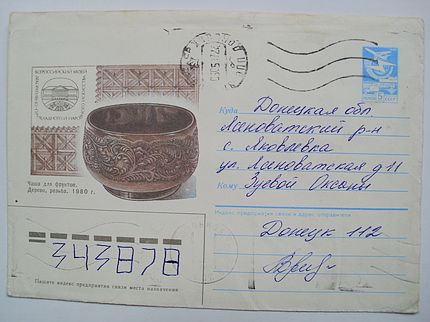 ВСЕРОССИЙСКИЙ МУЗЕЙ
Чаша для фруктов.
Дерево, резьба. 1980 г.
Куда Донецкая обл.
Ясиноватский р-н
с. Яковлевка
ул. Ясиноватская д 11
Кому Зуевой Оксаны
Индекс предприятия связи и адрес отправителя
Донецк 112
343878
Пишите индекс предприятия связи места назначения